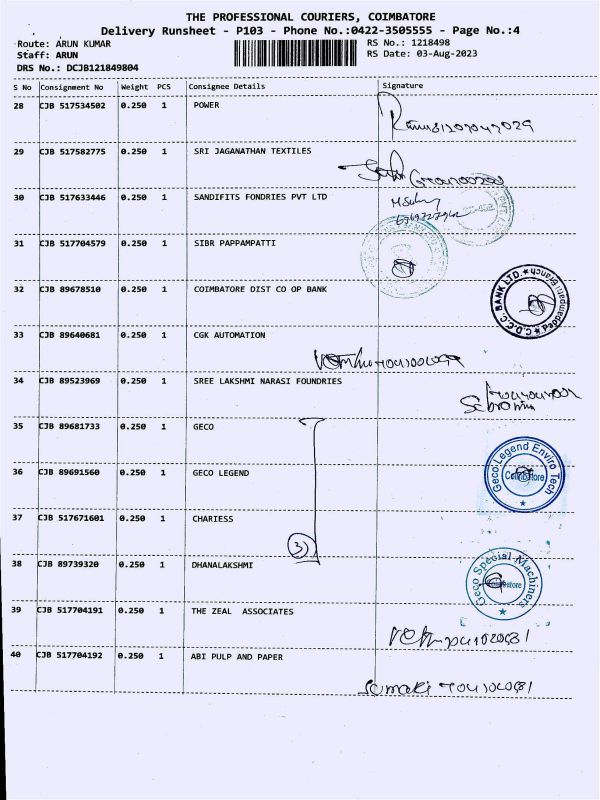 THE PROFESSIONAL COURIERS, COIMBATORE
Delivery Runsheet - P103 - Phone No.:0422-3505555 - Page No.:4
Route: ARUN KUMAR RS No.: 1218498
Staff: ARUN RS Date: 03-Aug-2023
DRS No.: DCJB121849804
S No Consignment No Weight PCS Consignee Details Signature
28 CJB 517534502 0.250 1 POWER
29 CJB 517582775 0.250 1 SRI JAGANATHAN TEXTILES
30 CJB 517633446 0.250 1 SANDIFITS FONDRIES PVT LTD
31 CJB 517704579 0.250 1 SIBR PAPPAMPATTI
32 CJB 89678510 0.250 1 COIMBATORE DIST CO OP BANK
C.D.C.C. BANK LTD. ★ Pappampatti Branch ★
33 CJB 89640681 0.250 1 CGK AUTOMATION
34 CJB 89523969 0.250 1 SREE LAKSHMI NARASI FOUNDRIES
35 CJB 89681733 0.250 1 GECO
36 CJB 89691560 0.250 1 GECO LEGEND
Geco Legend Enviro Tech
Coimbatore
37 CJB 517671601 0.250 1 CHARIESS
3
38 CJB 89739320 0.250 1 DHANALAKSHMI
Geco Special Machiners
39 CJB 517704191 0.250 1 THE ZEAL ASSOCIATES
40 CJB 517704192 0.250 1 ABI PULP AND PAPER